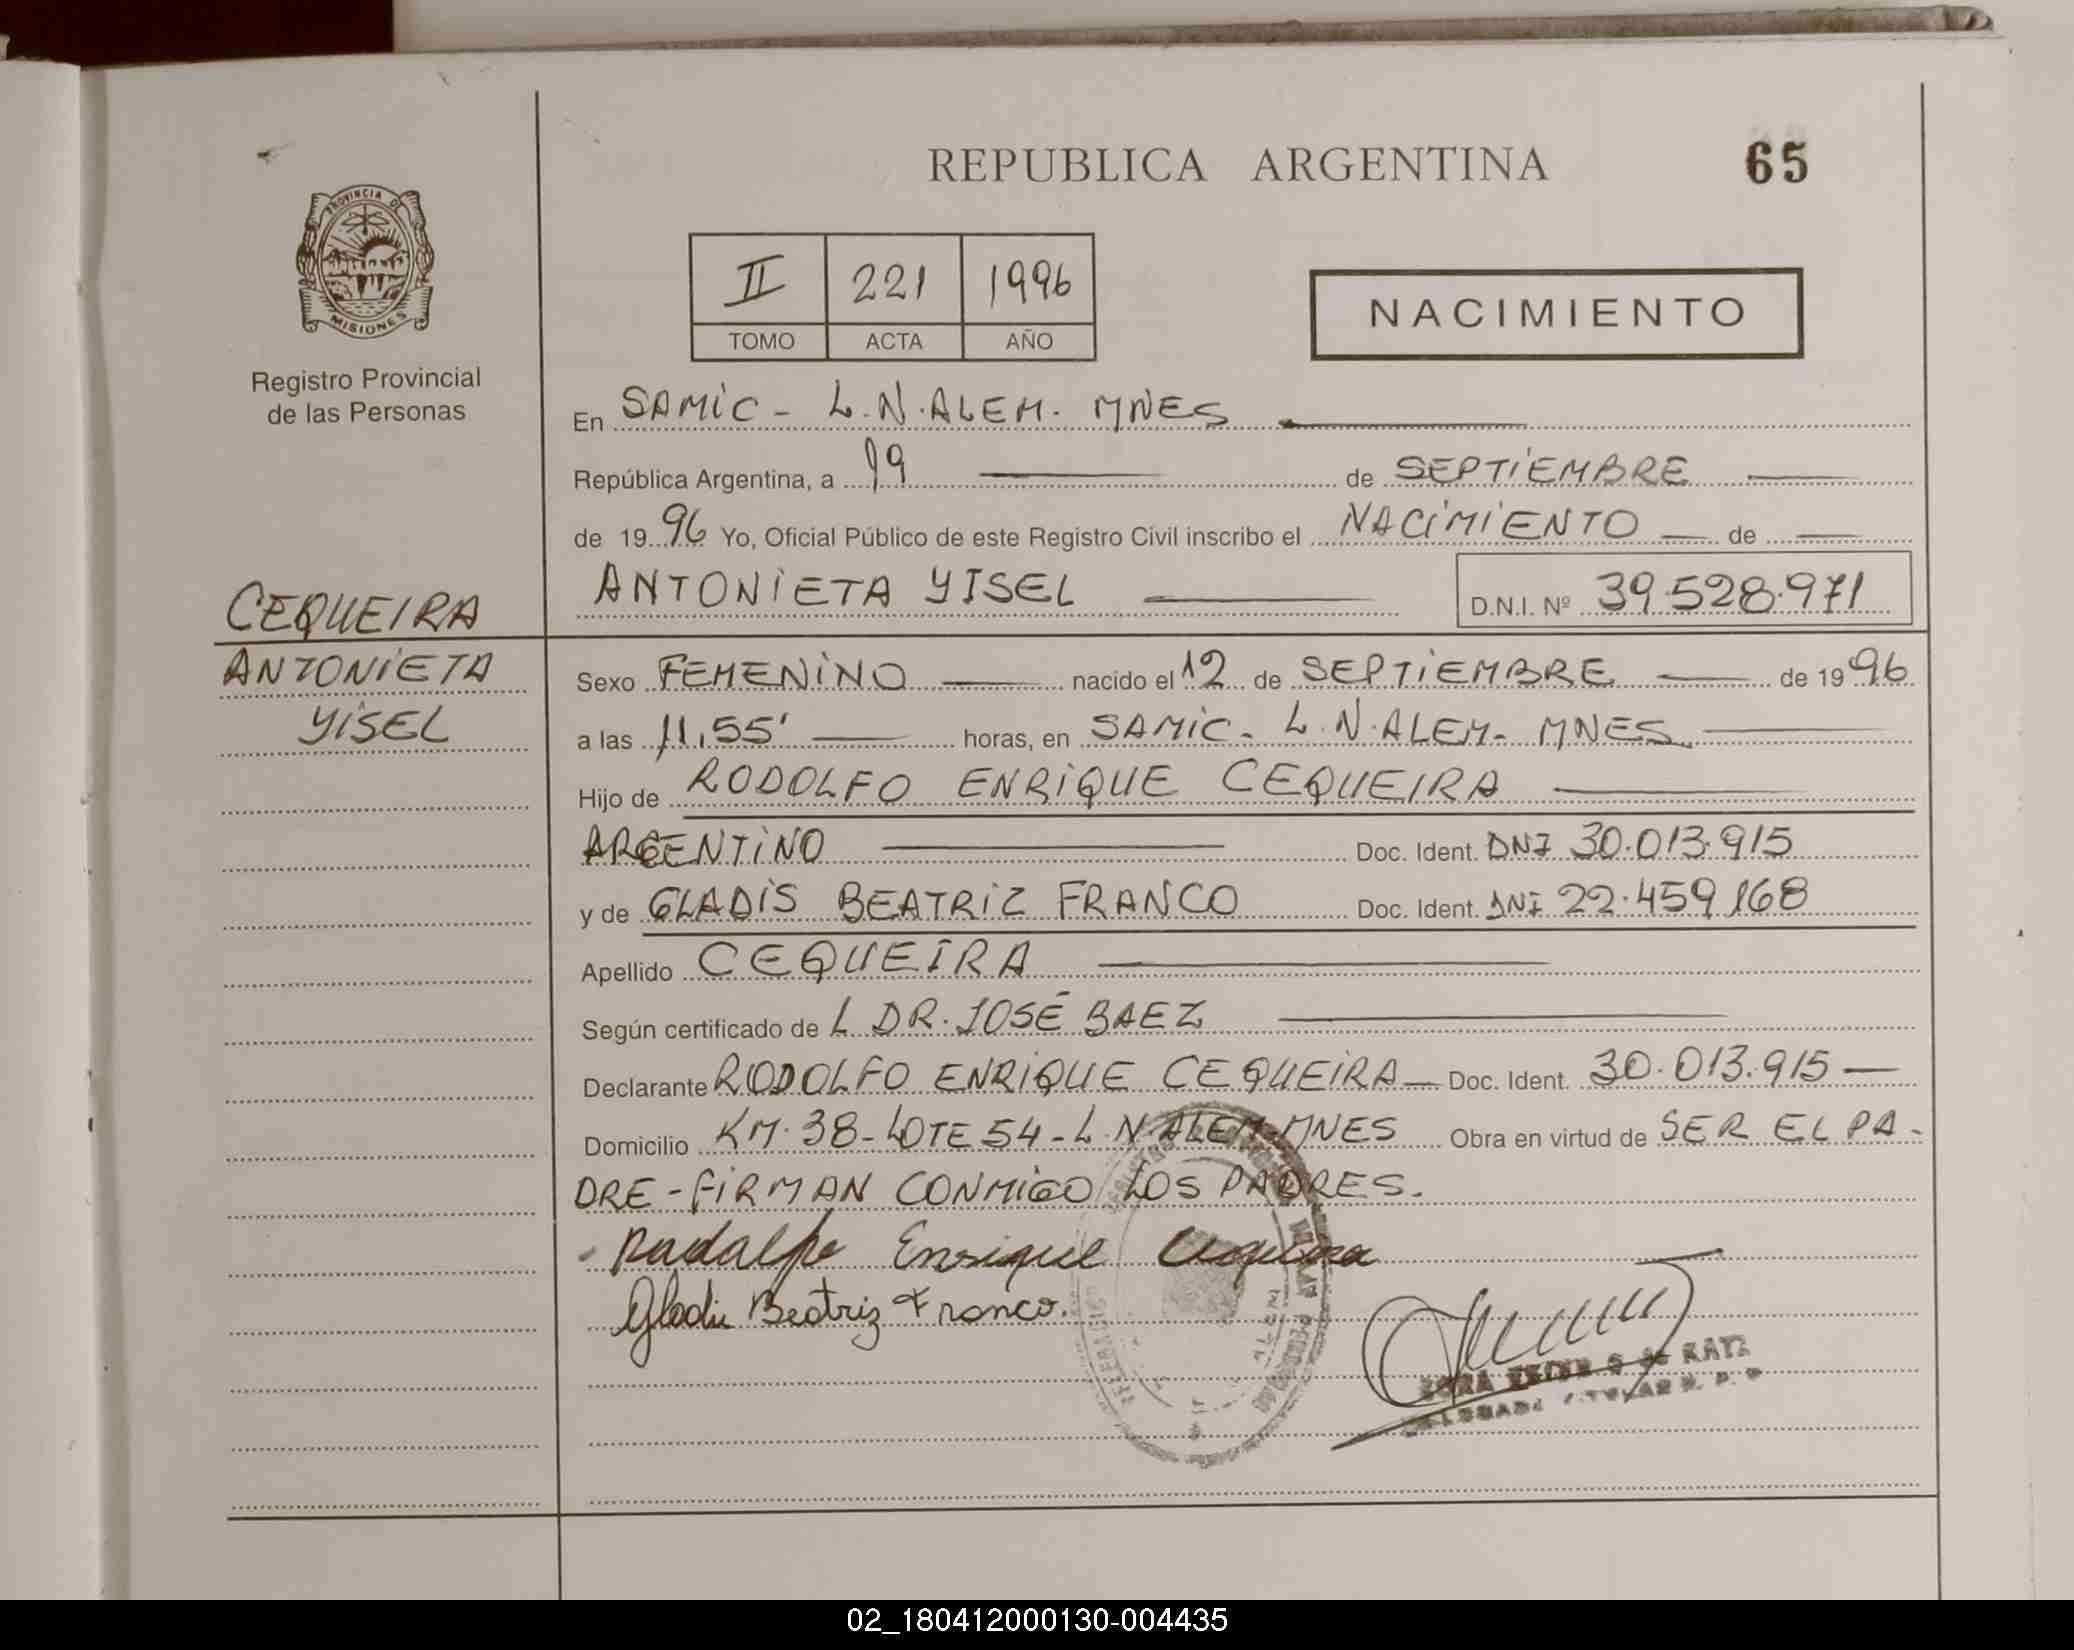 REPUBLICA ARGENTINA
65
PROVINCIA DE
MISIONES
Registro Provincial
de las Personas
II 221 1996
TOMO ACTA AÑO
NACIMIENTO
En SAMIC - L.N.ALEM. MNES
República Argentina, a 19 de SEPTIEMBRE
de 1996 Yo, Oficial Público de este Registro Civil inscribo el NACIMIENTO de
ANTONIETA YISEL D.N.I. Nº 39.528.971
CEQUEIRA
ANTONIETA
YISEL
Sexo FEMENINO nacido el 12 de SEPTIEMBRE de 1996
a las 11,55' horas, en SAMIC - L.N.ALEM - MNES
Hijo de RODOLFO ENRIQUE CEQUEIRA
ARGENTINO Doc. Ident. DNI 30.013.915
y de GLADIS BEATRIZ FRANCO Doc. Ident. DNI 22.459.168
Apellido CEQUEIRA
Según certificado de L DR. JOSÉ BAEZ
Declarante RODOLFO ENRIQUE CEQUEIRA Doc. Ident. 30.013.915
Domicilio KM. 38 - LOTE 54 - L.N.ALEM - MNES Obra en virtud de SER EL PA-
DRE - FIRMAN CONMIGO LOS PADRES.
Rodolfo Enrique Cequeira
Gladis Beatriz Franco.
02_180412000130-004435